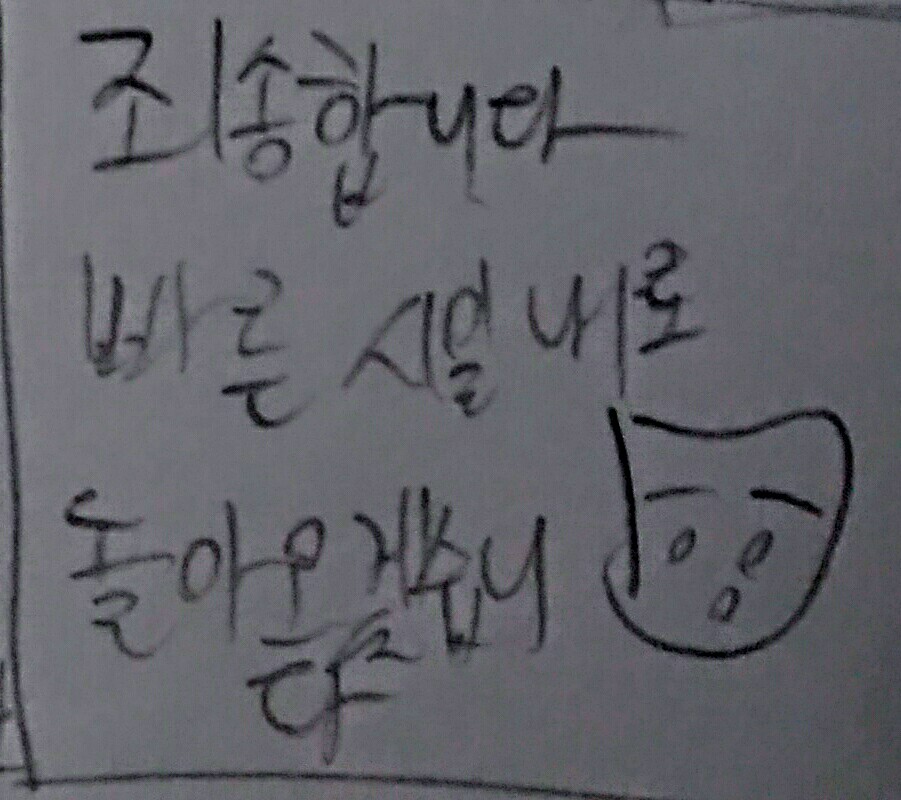 죄송합니다
빠른 시일 내로
돌아오겠습니
다